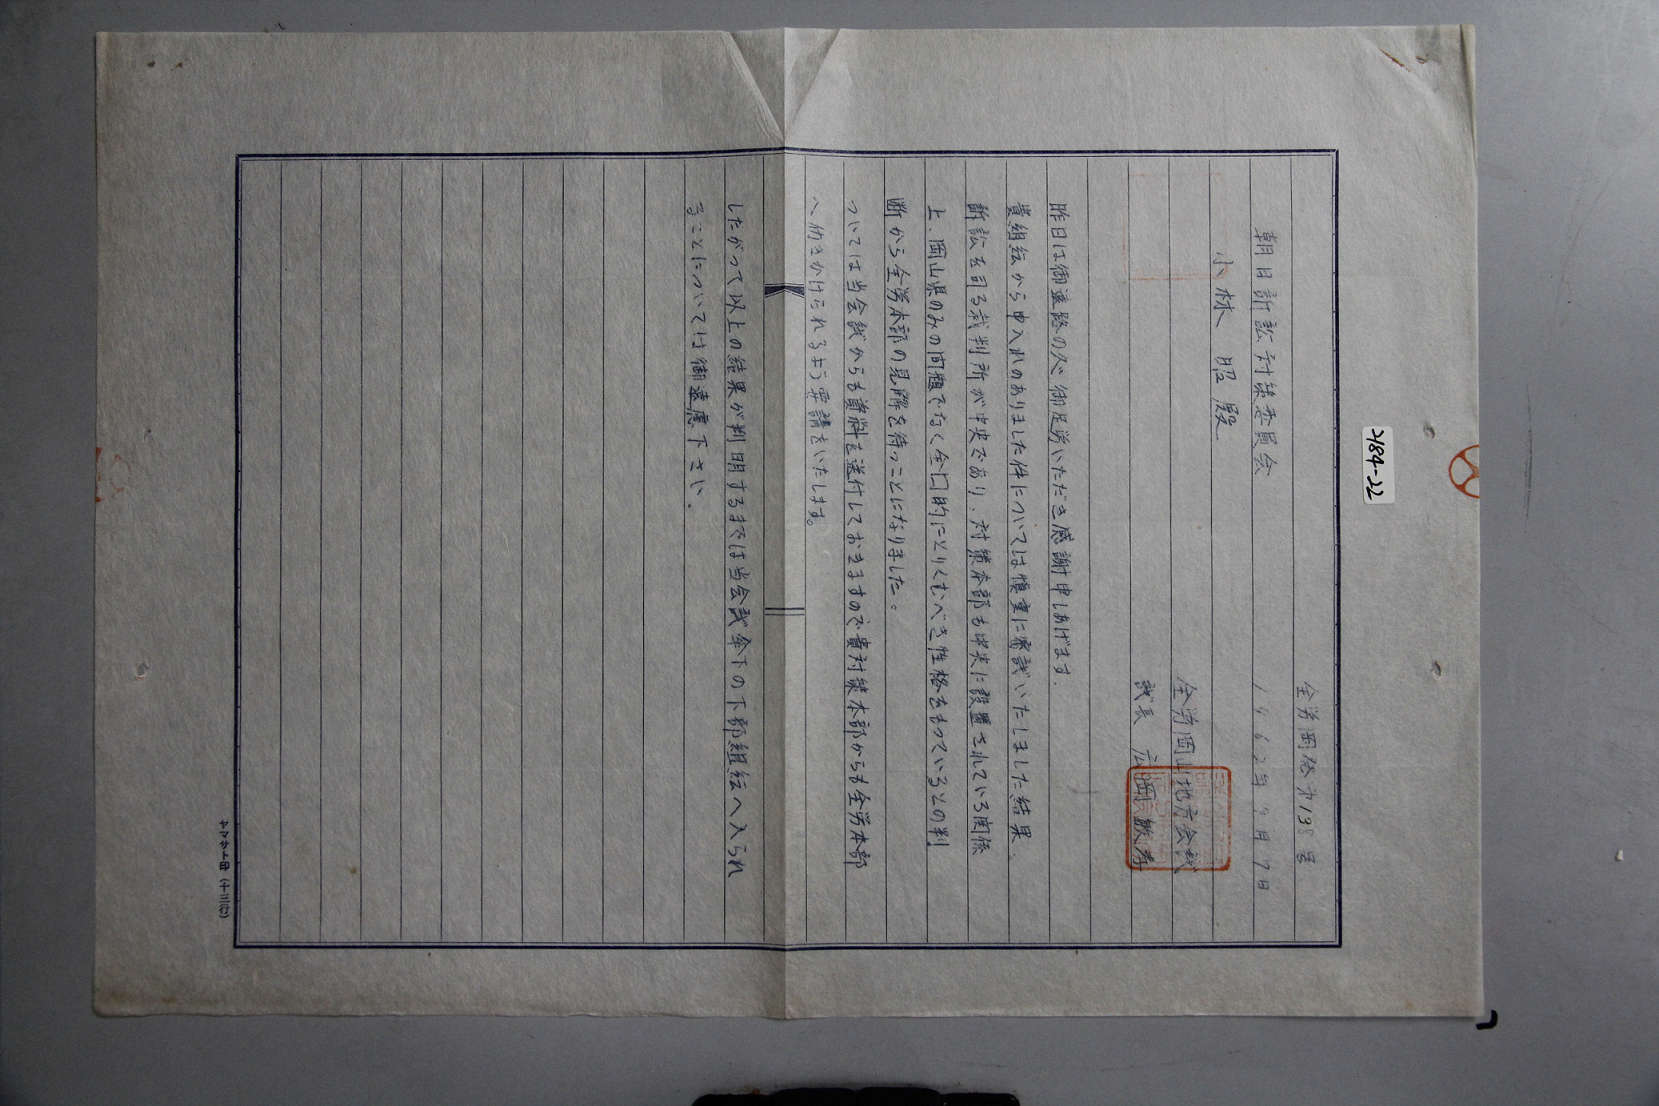 2184-22
全労岡発才138号
1962年9月7日
朝日訴訟対策委員会
小林 昭 殿
全労岡山地方会议
议長 広岡敏寿
昨日は御遠路の処御足労いただき感謝申しあげます.
貴組织から申入れのありました件については慎重に審议いたしました結果、
訴訟を司る裁判所が中央であり、対策本部も中央に設置されている関係
上、岡山県のみの問題でなく全口的にとりくむべき性格をもっているとの判
断から全労本部の見解を待つことになりました。
ついては当会议からも資料を送付しておきますので貴対策本部からも全労本部
へ仂きかけられるよう要請をいたします。
したがって以上の結果が判明するまでは当会议傘下の下部組织へ入られ
ることについては御遠慮下さい.